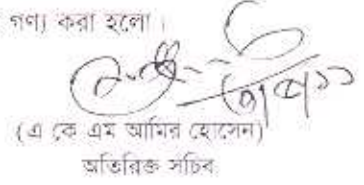 গণ্য করা হলো।
(এ কে এম আমির হোসেন)
অতিরিক্ত সচিব